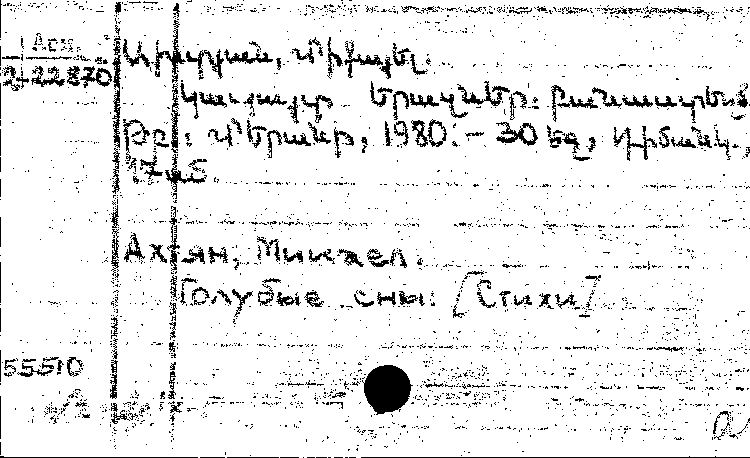 Асх.
2-22870
Ախտյան, Միքայել.
Կապույտ երազներ: Բանաստեղծ.
Թբ.: Մերանի, 1980.- 30 էջ, դիմանկ.,
17 սմ.
Ахтян, Микаел.
Голубые сны: [Стихи]
55510